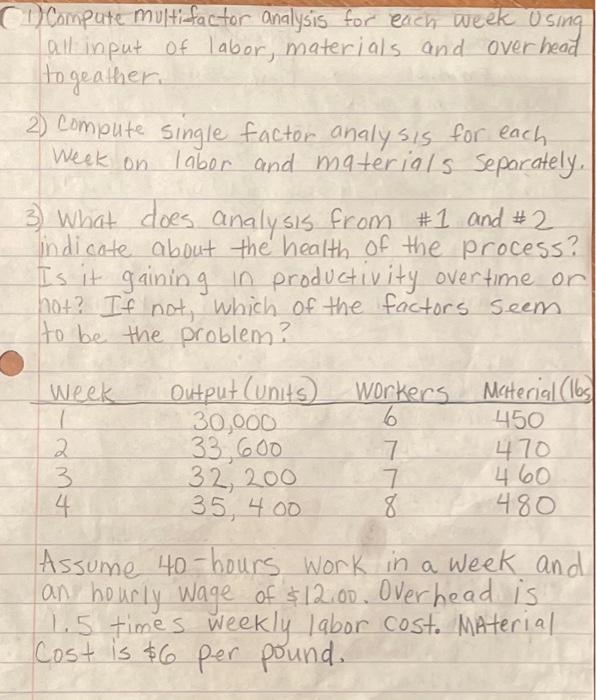 1) Compute multi-factor analysis for each week using
all input of labor, materials and overhead
togeather.
2) Compute single factor analysis for each
week on labor and materials separately.
3) What does analysis from #1 and #2
indicate about the health of the process?
Is it gaining in productivity overtime or
not? If not, which of the factors seem
to be the problem?
Week Output (units) Workers Material (lbs)
1 30,000 6 450
2 33,600 7 470
3 32,200 7 460
4 35,400 8 480
Assume 40-hours work in a week and
an hourly wage of $12.00. Overhead is
1.5 times weekly labor cost. MAterial
Cost is $6 per pound.